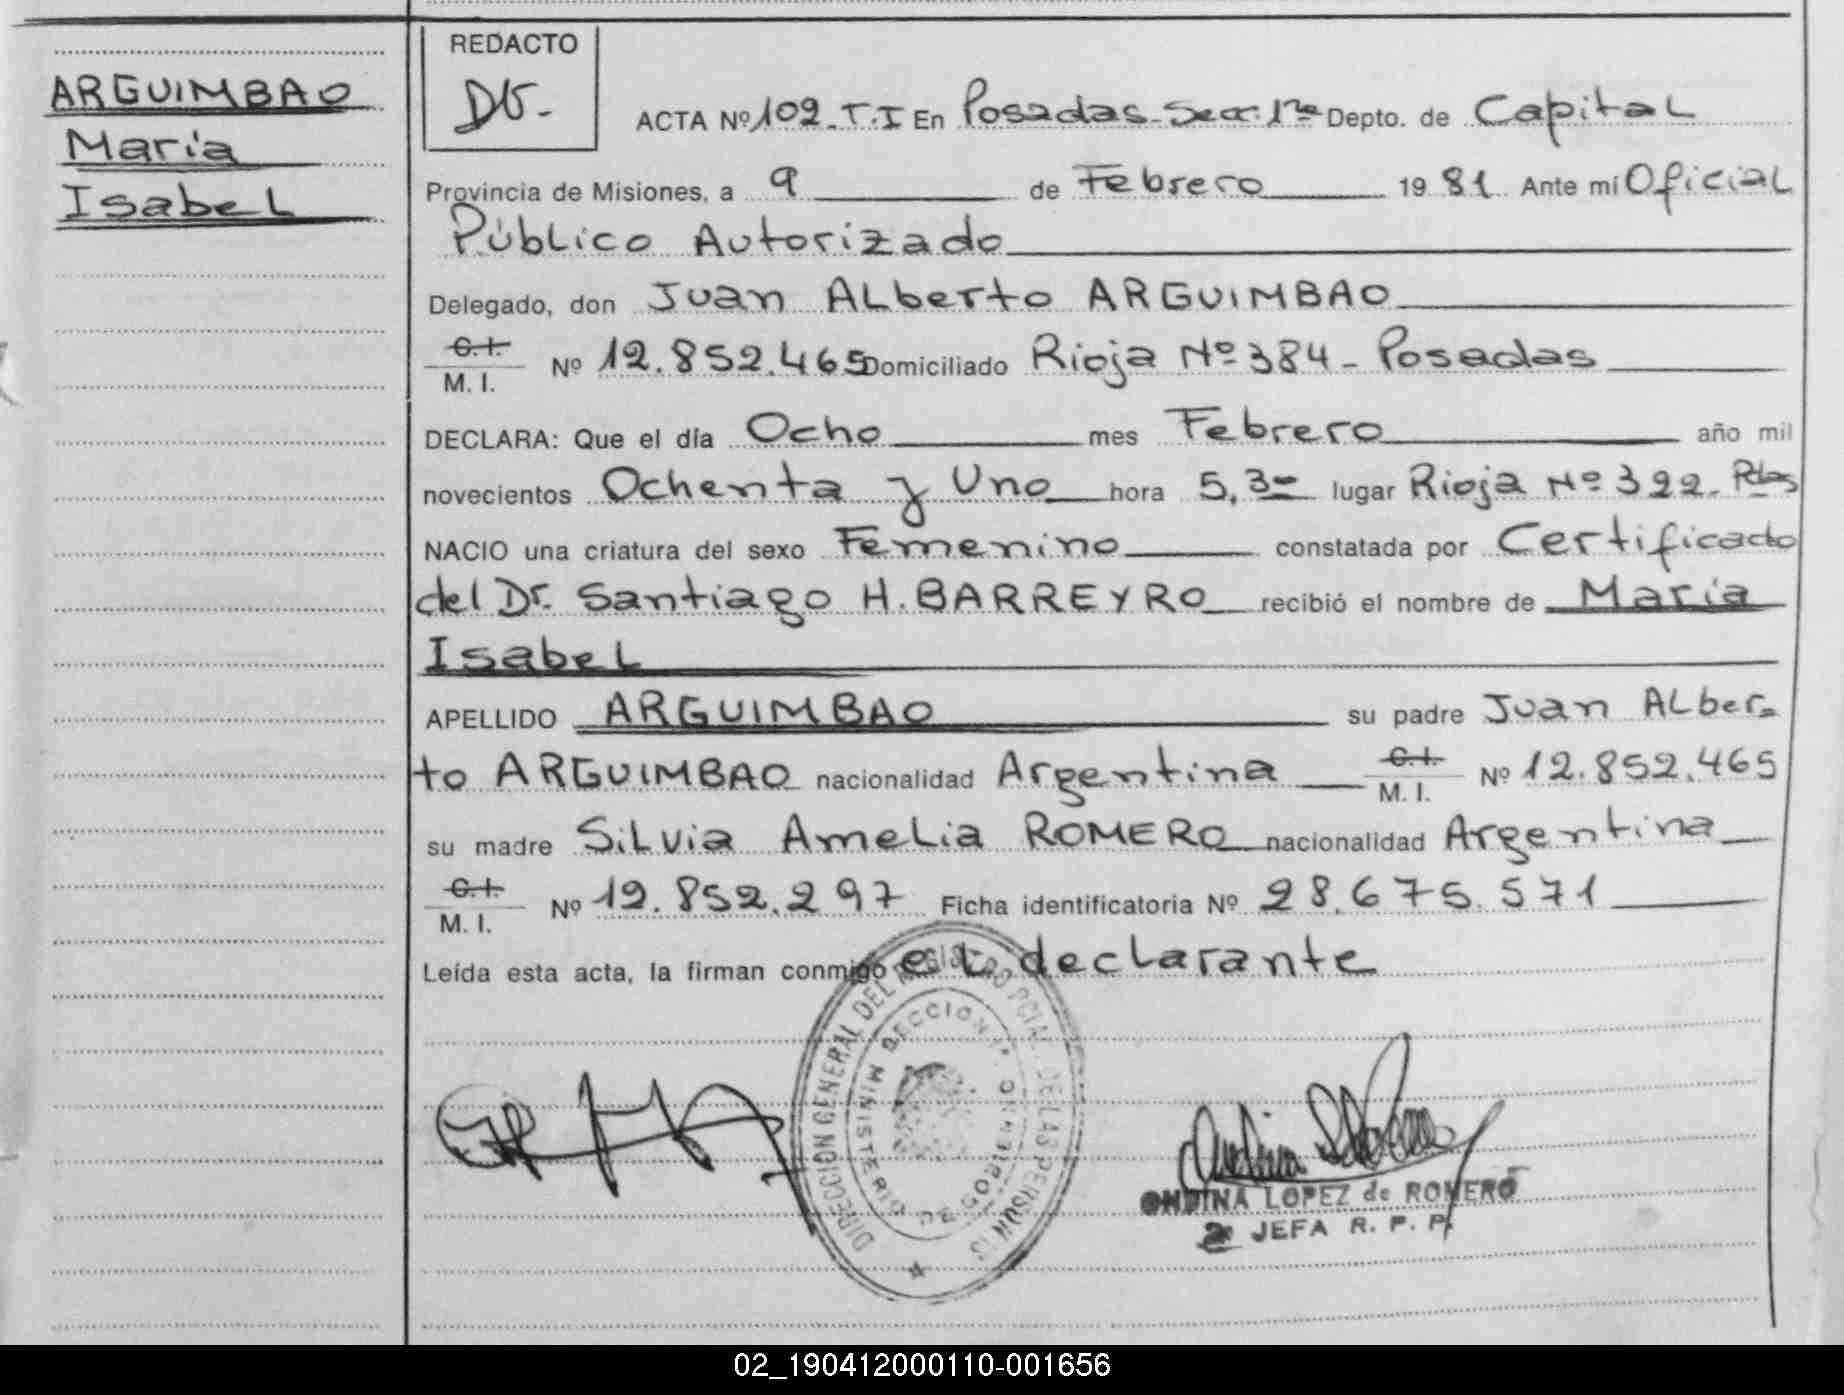 ARGUIMBAO
María
Isabel
REDACTO
ACTA Nº 102 T.I En Posadas Secc. 1ra Depto. de Capital
Provincia de Misiones, a 9 de Febrero 19 81 Ante mí Oficial
Público Autorizado
Delegado, don Juan Alberto ARGUIMBAO
C.I. M. I. Nº 12.852.465 Domiciliado Rioja Nº 384 - Posadas
DECLARA: Que el día Ocho mes Febrero año mil
novecientos Ochenta y Uno hora 5,30 lugar Rioja Nº 322 - Pdas
NACIO una criatura del sexo Femenino constatada por Certificado
del Dr. Santiago H. BARREYRO recibió el nombre de María
Isabel
APELLIDO ARGUIMBAO su padre Juan Alber-
to ARGUIMBAO nacionalidad Argentina C.I. M. I. Nº 12.852.465
su madre Silvia Amelia ROMERO nacionalidad Argentina
C.I. M. I. Nº 12.852.297 Ficha identificatoria Nº 28.675.571
Leída esta acta, la firman conmigo el declarante
DIRECCION GENERAL DEL REGISTRO PCIAL. DE LAS PERSONAS
MINISTERIO
ONDINA LOPEZ de ROMERO
2 JEFA R. P. P.
02_190412000110-001656